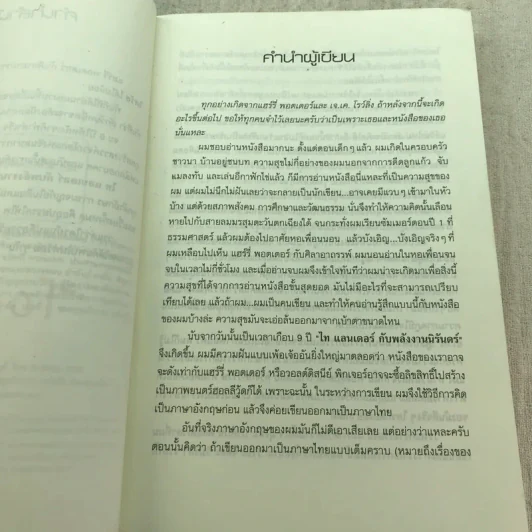 คำนำผู้เขียน
ทุกอย่างเกิดจากแฮร์รี่ พอตเตอร์และ เจ.เค. โรว์ลิ่ง ถ้าหลังจากนี้จะเกิด
อะไรขึ้นต่อไป ขอให้ทุกคนจำไว้เลยนะครับว่าเป็นเพราะเธอและหนังสือของเธอ
นั่นแหละ
ผมชอบอ่านหนังสือมากนะ ตั้งแต่ตอนเด็กๆ แล้ว ผมเกิดในครอบครัว
ชาวนา บ้านอยู่ชนบท ความสุขไม่กี่อย่างของผมนอกจากการดีดลูกแก้ว จับ
แมลงทับ และเล่นอีกาฟักไข่แล้ว ก็มีการอ่านหนังสือนี่แหละที่เป็นความสุขของ
ผม แต่ผมไม่นึกไม่ฝันเลยว่าจะกลายเป็นนักเขียน...อาจเคยมีแวบๆ เข้ามาในหัว
บ้าง แต่ด้วยสภาพสังคม การศึกษาและวัฒนธรรม นั่นจึงทำให้ความคิดนั้นเลือน
หายไปกับสายลมมรสุมตะวันตกเฉียงใต้ จนกระทั่งผมเรียนซัมเมอร์ตอนปี 1 ที่
ธรรมศาสตร์ แล้วผมต้องไปอาศัยหอเพื่อนนอน แล้วบังเอิญ...บังเอิญจริงๆ ที่
ผมเหลือบไปเห็น แฮร์รี่ พอตเตอร์ กับศิลาอาถรรพ์ ผมนอนอ่านในหอเพื่อนจน
จบในเวลาไม่กี่ชั่วโมง และเมื่ออ่านจบผมจึงเข้าใจทันทีว่าผมน่าจะเกิดมาเพื่อสิ่งนี้
ความสุขที่ได้จากการอ่านหนังสือขั้นสุดยอด มันไม่มีอะไรที่จะสามารถเปรียบ
เทียบได้เลย แล้วถ้าผม...ผมเป็นคนเขียน และทำให้คนอ่านรู้สึกแบบนี้กับหนังสือ
ของผมบ้างล่ะ ความสุขมันจะเอ่อล้นออกมาจากเบ้าตาขนาดไหน
นับจากวันนั้นเป็นเวลาเกือบ 9 ปี "ไท แลนเดอร์ กับพลังงานนิรันดร์"
จึงเกิดขึ้น ผมมีความฝันแบบเพ้อเจ้ออันยิ่งใหญ่มาตลอดว่า หนังสือของเราอาจ
จะดังเท่ากับแฮร์รี่ พอตเตอร์ หรือวอลต์ดิสนีย์ พิกเจอร์อาจจะซื้อลิขสิทธิ์ไปสร้าง
เป็นภาพยนตร์ฮอลลีวู้ดก็ได้ เพราะฉะนั้น ในระหว่างการเขียน ผมจึงใช้วิธีการคิด
เป็นภาษาอังกฤษก่อน แล้วจึงค่อยเขียนออกมาเป็นภาษาไทย
อันที่จริงภาษาอังกฤษของผมมันก็ไม่ดีเอาเสียเลย แต่อย่างว่าแหละครับ
ตอนนั้นคิดว่า ถ้าเขียนออกมาเป็นภาษาไทยแบบเต็มคราบ (หมายถึงเรื่องของ